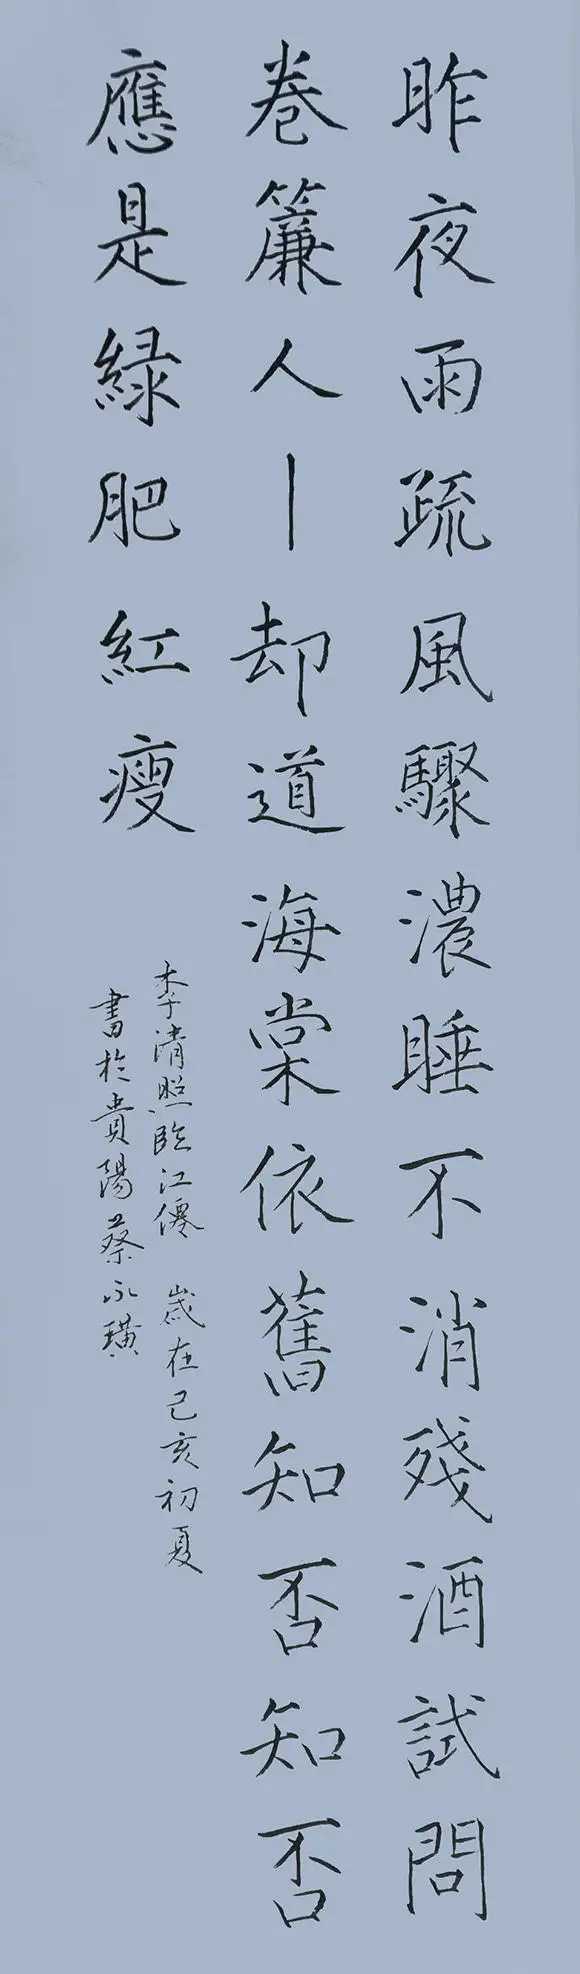 昨夜雨疏風驟濃睡不消殘酒試問
卷簾人｜却道海棠依舊知否知否
應是綠肥紅瘦
李清照臨江僊 歲在己亥初夏
書於貴陽蔡永璜